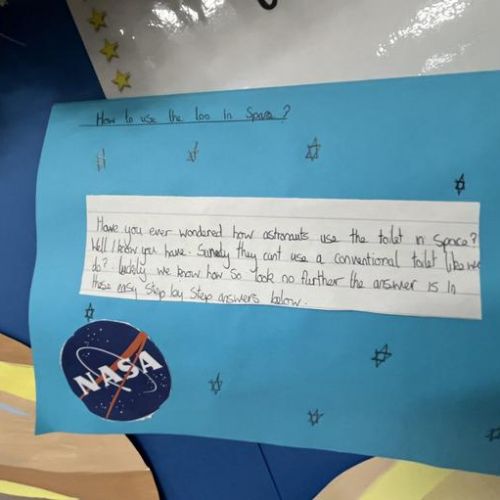 How to use the loo in Space?
Have you ever wondered how astronauts use the toilet in space?
Well I know you have. Surely they cant use a conventional toilet like we
do? luckily we know how so look no further the answer is in
these easy step by step answers below.
NASA